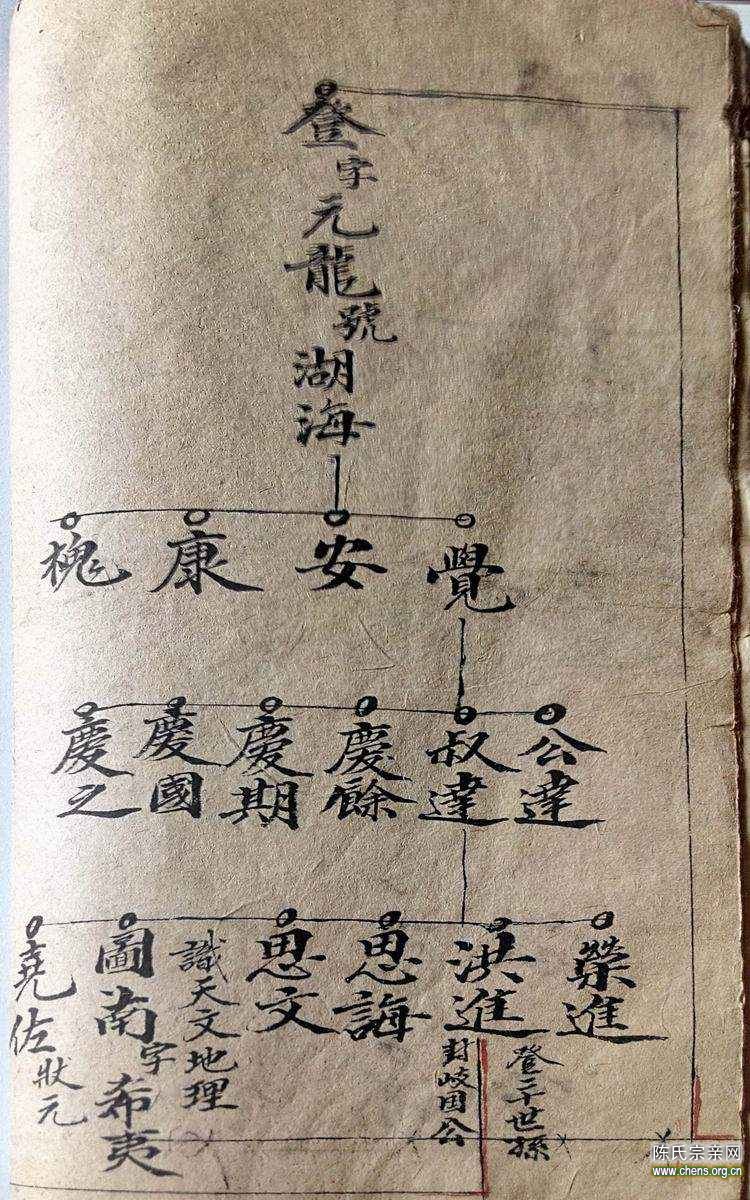 登字元龍號湖海
覺
安
康
槐
公達
叔達
慶餘
慶期
慶國
慶之
榮進
登三十世孫
洪進
封岐国公
思誨
思文
識天文地理
圖南字希夷
堯佐狀元
陈氏宗亲网
www.chens.org.cn